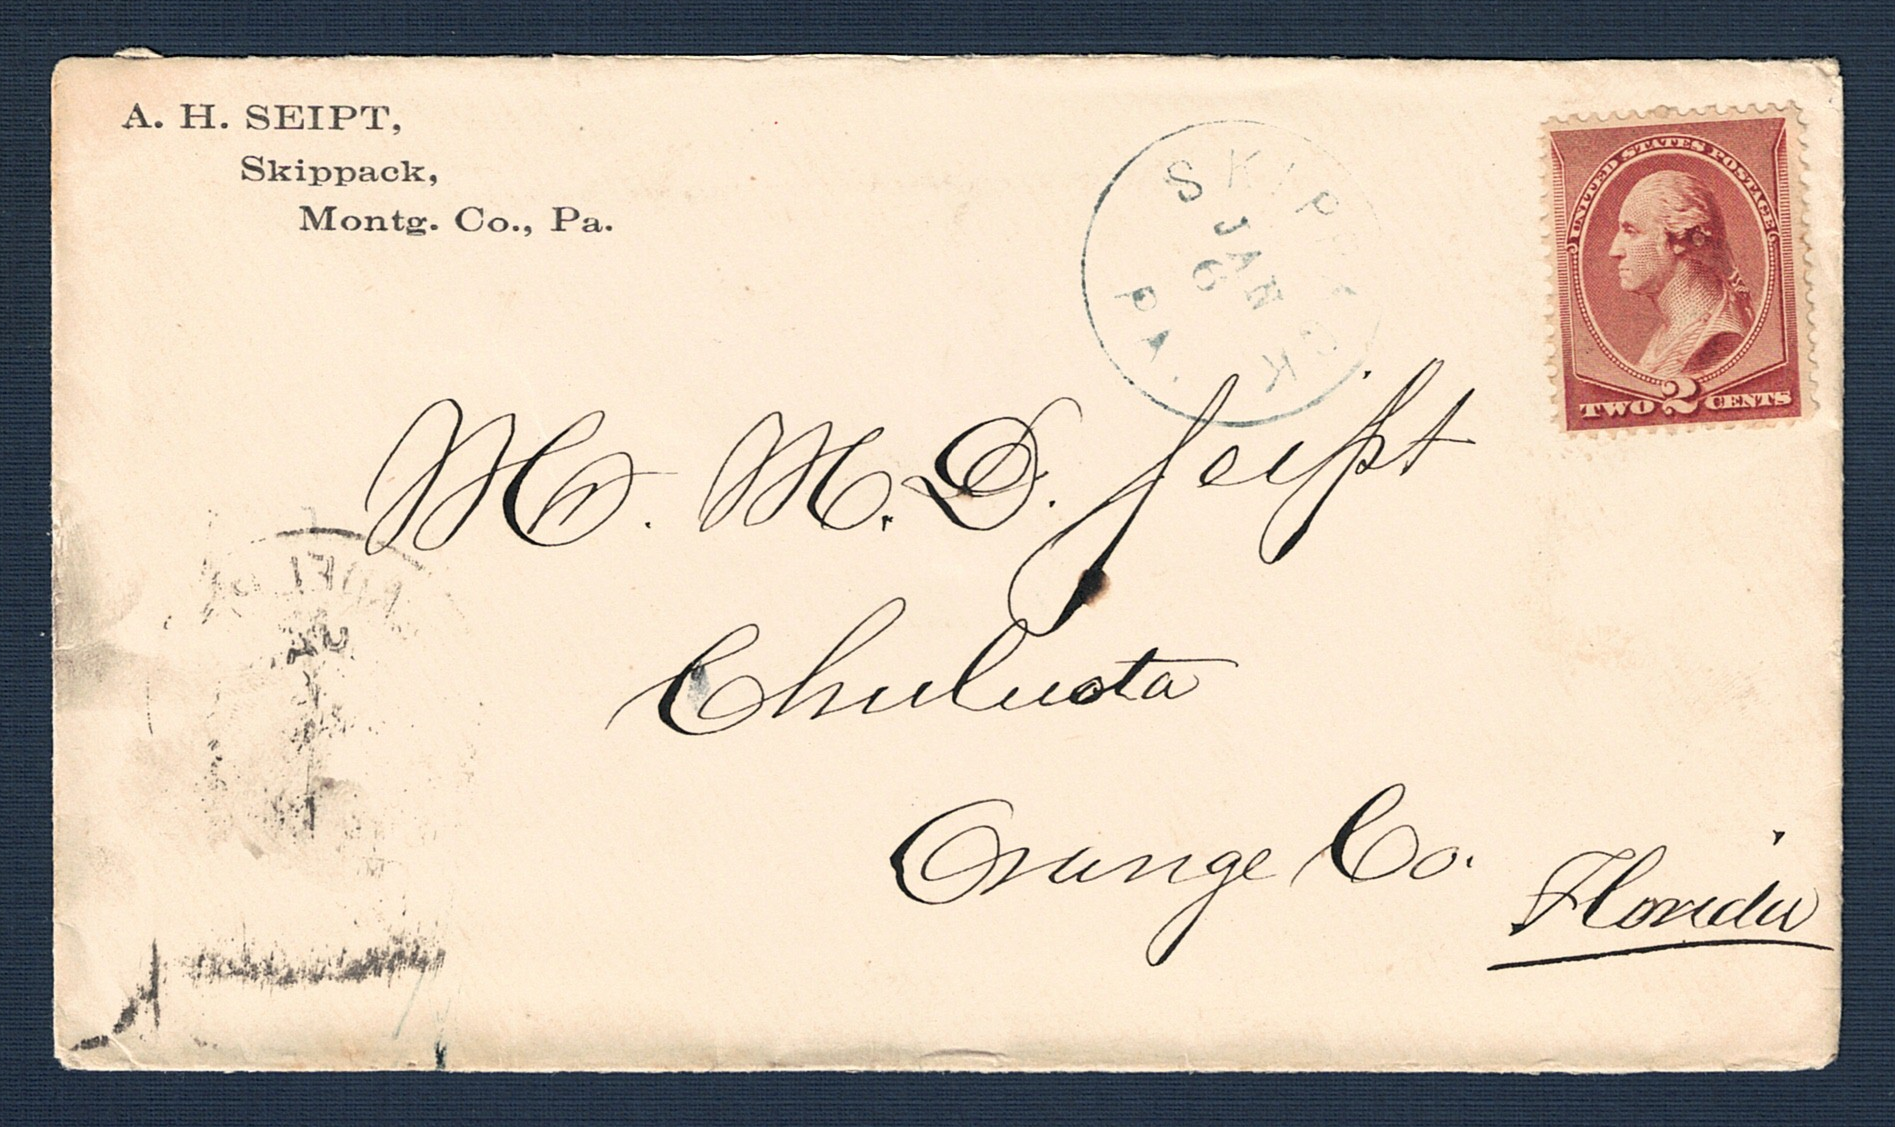 A. H. SEIPT,
Skippack,
Montg. Co., Pa.
SKIPPACK
JAN
6
PA.
UNITED STATES POSTAGE
TWO 2 CENTS
Mr. M. D. Seipt
Chuluota
Orange Co.
Florida